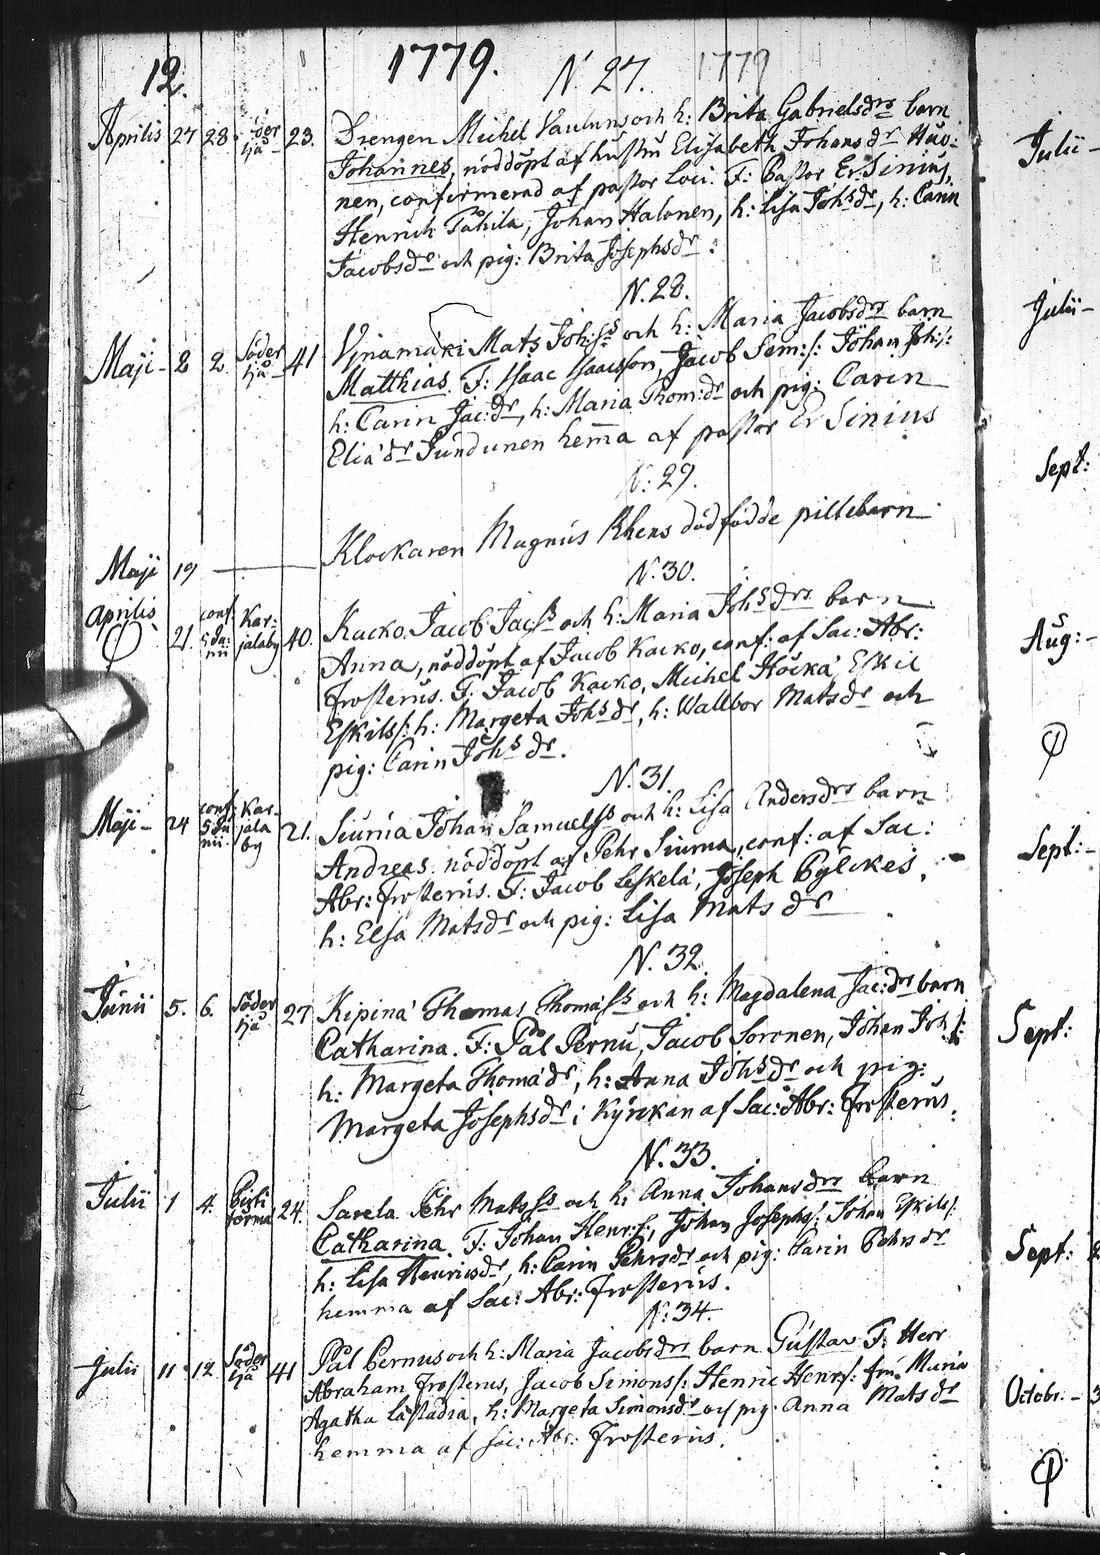 12.
1779.
N. 27.
1779
Aprilis 27 28 Söder kjä 23. Drengen Michel Pauluns och h: Brita Gabrielsdrs barn
Johannes, nöddöpt af hustru Elisabeth Johansdr
nen, confirmerad af pastor Loci. F: Pastor Er. Sinius,
Henrich Påhila, Johan Halonen, h: Lisa Johsdr, h: Carin
Jacobsdr och pig: Brita Josephsdr:
N. 28.
Maji- 2 2. Söder kjä 41 Mats Johss och h: Maria Jacobsdrs barn
Matthias. F: Isaac Isaacsson, Jacob Sem:s: Johan Joh:s:
h: Carin Jac:dr, h: Maria Thom:dr och pig: Carin
Eliædr Sundunen hema af pastor Er Sinius
N: 29.
Maji 19 Klockaren Magnus Rhens dödfödde piltebarn
N. 30.
Aprilis 21. conf 5 Junii Karjalaby 40. Kacko Jacob Jacss och h: Maria Johsdrs barn
Anna, nöddöpt af Jacob Kacko, conf: af Sac: Abr:
Frosterus. F: Jacob Kacko, Michel Höckä Eskil
Eskilss: h: Margeta Johsdr, h: Wallbor Matsdr och
pig: Carin Johsdr.
N. 31.
Maji- 24 conf 5 Junii Karjalaby 21. Siurua Johan Samuelss och h: Lisa Andersdrs barn
Andreas nöddöpt af Pehr Siurua, conf: af Sac:
Abr: Frosterus. F: Jacob Leskelä, Joseph Pylckes,
h: Elsa Matsdr och pig: Lisa Mats dr
N. 32
Junii 5. 6. Söder kjä 27 Kipinä Thomas Thomæss och h: Magdalena Jac:dr barn
Catharina. F: Pål Pernu, Jacob Soronen, Johan Johs:
h: Margeta Thomædr, h: Anna Johsdr och pig:
Margeta Josephsdr i Kyrckan af Sac: Abr: Frosterus.
N. 33.
Julii 1 4. 24. Sarela Pehr Matsss och h: Anna Johansdrs barn
Catharina. F: Johan Henr:s:, Johan Josephs: Johan Eskils:
h: Lisa Henricsdr, h: Carin Pehrsdr och pig: Carin Pehrsdr
hemma af Sac: Abr: Frosterus.
N: 34.
Julii 11 12 Söder kjä 41 Pål Pernus och h: Maria Jacobsdrs barn Gustav F: Herr
Abraham Frosterus, Jacob Simonss: Henric Henrs: fru Maria
Agatha Læstadia, h: Margeta Simonsdr och pig: Anna Matsdr
hemma af Sac: Abr: Frosterus.
Julii-
Julii-
Sept:
Aug:-
Sept:-
Sept:
Sept: 2
Octobr.- 3